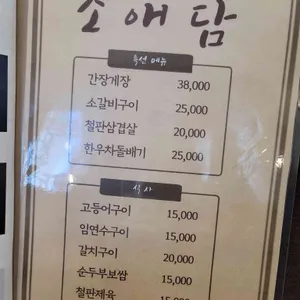 소애담
특선 메뉴
간장게장 38,000
소갈비구이 25,000
철판삼겹살 20,000
한우차돌배기 25,000
식사
고등어구이 15,000
임연수구이 15,000
갈치구이 20,000
순두부보쌈 15,000
철판제육 15,000